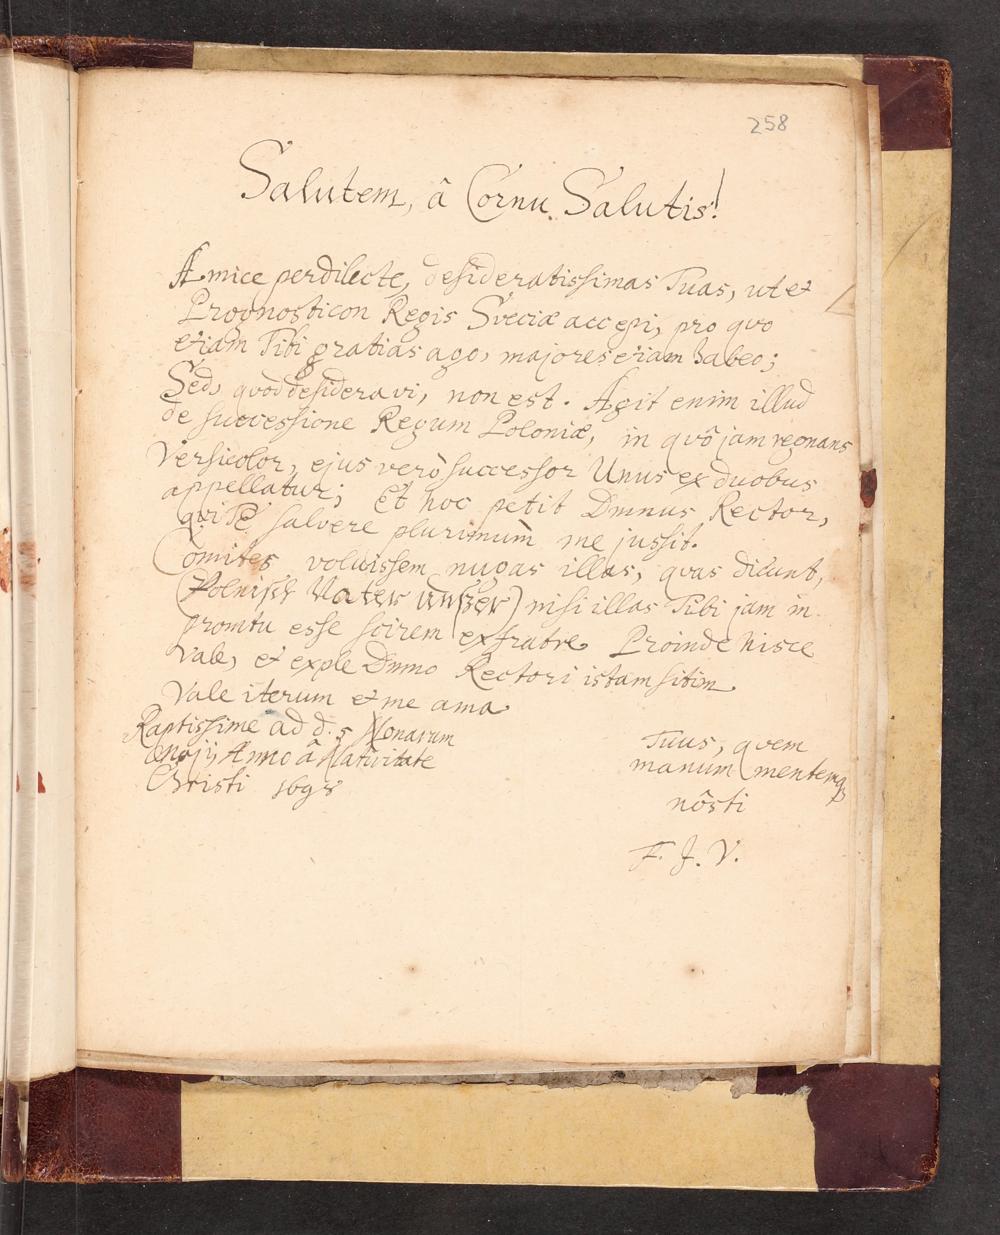 258
Salutem, â Cornu Salutis!
Amice perdilecte, desideratissimas Tuas, ut et
Prognosticon Regis Sveciæ accepi, pro qvo
etiam Tibi gratias ago, majores etiam habeo;
Sed, qvod desideravi, non est. Agit enim illud
de successione Regum Poloniæ, in qvô jam regnans
Versicolor, ejus verò successor Unus ex duobus
appellatur; Et hoc petit Dmnus Rector,
qvi Te salvere plurimùm me jussit.
Comites voluissem nugas illas, qvas dicunt,
(Polnisch Vater unser) nisi illas Tibi jam in
promtu esse scirem ex fratre. Proinde hisce
Vale, et exple Dnno Rectori istam sitim
Vale iterum et me ama.
Raptissime ad d. 5 Nonarum
Maji, Anno â Nativitate
Christi 1698
Tuus, qvem
manum mentemq
nôsti
F. J. V.